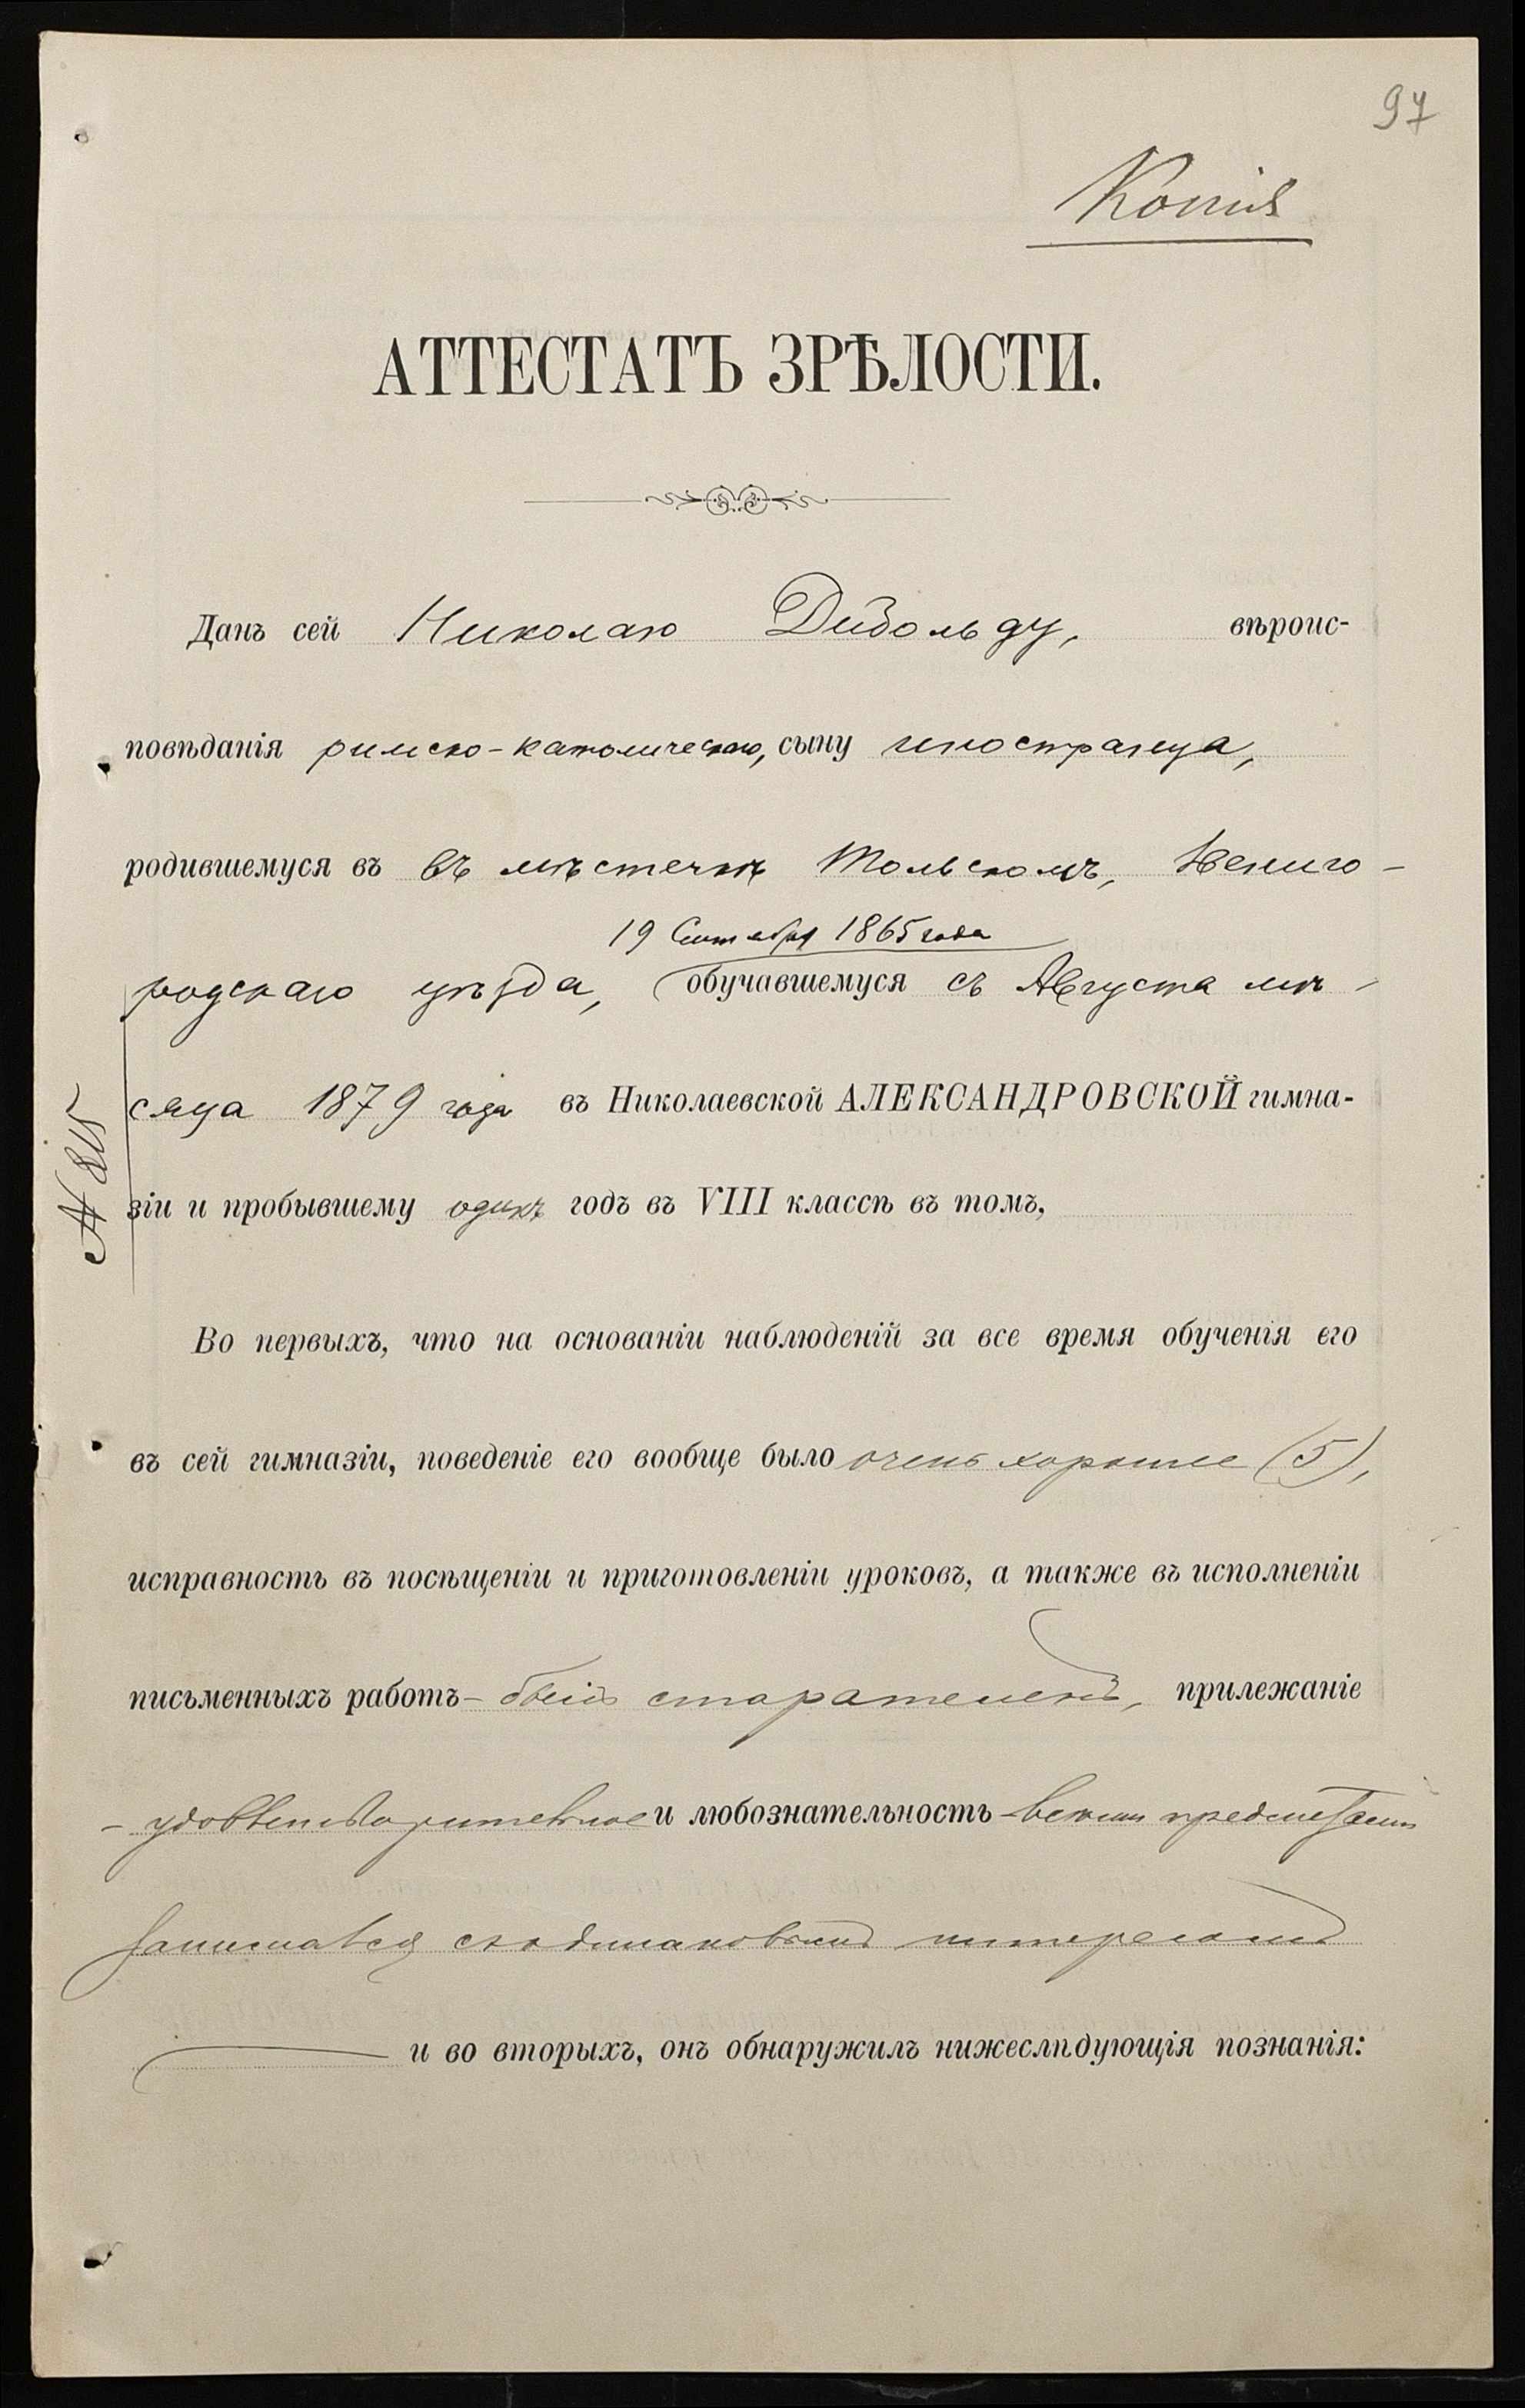 97
Копія
АТТЕСТАТЪ ЗРѢЛОСТИ.
Данъ сей Николаю Дибольду, вѣроис-
повѣданія римско-католическаго, сыну иностранца,
родившемуся въ въ мѣстечкѣ Тольскомъ, Звениго-
19 Сентября 1865 года
родскаго уѣзда, обучавшемуся съ Августа мѣ-
сяца 1879 года въ Николаевской АЛЕКСАНДРОВСКОЙ гимна-
зіи и пробывшему одинъ годъ въ VIII классѣ въ томъ,
Во первыхъ, что на основаніи наблюденій за все время обученія его
въ сей гимназіи, поведеніе его вообще было очень хорошее (5),
исправность въ посѣщеніи и приготовленіи уроковъ, а также въ исполненіи
письменныхъ работъ - былъ старателенъ, прилежаніе
- удовлетворительное и любознательность - всѣми предметами
занимался съ одинаковымъ интересомъ
и во вторыхъ, онъ обнаружилъ нижеслѣдующія познанія: